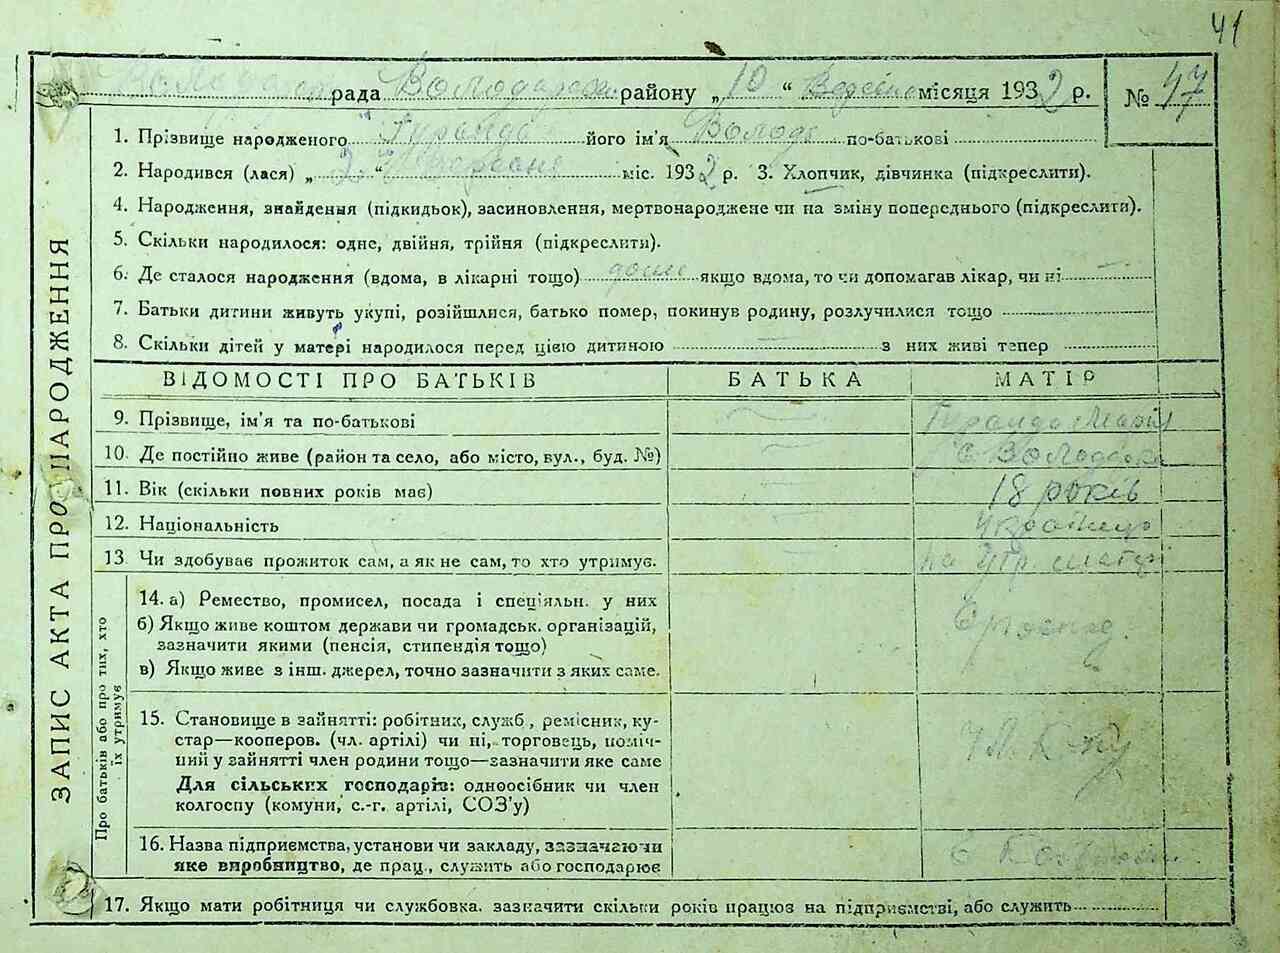 41
рада Володарського району „10“ Вересня місяця 1932 р. № 47
ЗАПИС АКТА ПРО НАРОДЖЕННЯ
1. Прізвище народженого його ім'я Володь по-батькові
2. Народився (лася) „2“ Вересня міс. 1932 р. 3. Хлопчик, дівчинка (підкреслити).
4. Народження, знайдення (підкидьок), засиновлення, мертвонароджене чи на зміну попереднього (підкреслити).
5. Скільки народилося: одне, двійня, трійня (підкреслити).
6. Де сталося народження (вдома, в лікарні тощо) дома якщо вдома, то чи допомагав лікар, чи ні —
7. Батьки дитини живуть укупі, розійшлися, батько помер, покинув родину, розлучилися тощо
8. Скільки дітей у матері народилося перед цією дитиною — з них живі тепер
ВІДОМОСТІ ПРО БАТЬКІВ БАТЬКА МАТІР
9. Прізвище, ім'я та по-батькові — Марія
10. Де постійно живе (район та село, або місто, вул., буд. №) — с. Володарка
11. Вік (скільки повних років має) — 18 років
12. Національність — українка
13. Чи здобуває прожиток сам, а як не сам, то хто утримує. — на утр. матері
Про батьків або про тих, хто їх утримує
14. а) Ремество, промисел, посада і спеціяльн. у них
б) Якщо живе коштом держави чи громадськ. організацій,
зазначити якими (пенсія, стипендія тощо)
в) Якщо живе з інш. джерел, точно зазначити з яких саме.
15. Становище в зайнятті: робітник, служб, ремісник, ку-
стар—кооперов. (чл. артілі) чи ні, торговець, поміч-
ний у зайнятті член родини тощо—зазначити яке саме
Для сільських господарів: одноосібник чи член
колгоспу (комуни, с.-г. артілі, СОЗ'у)
16. Назва підприємства, установи чи закладу, зазначаючи
яке виробництво, де прац., служить або господарює
17. Якщо мати робітниця чи службовка. зазначити скільки років працює на підприємстві, або служить